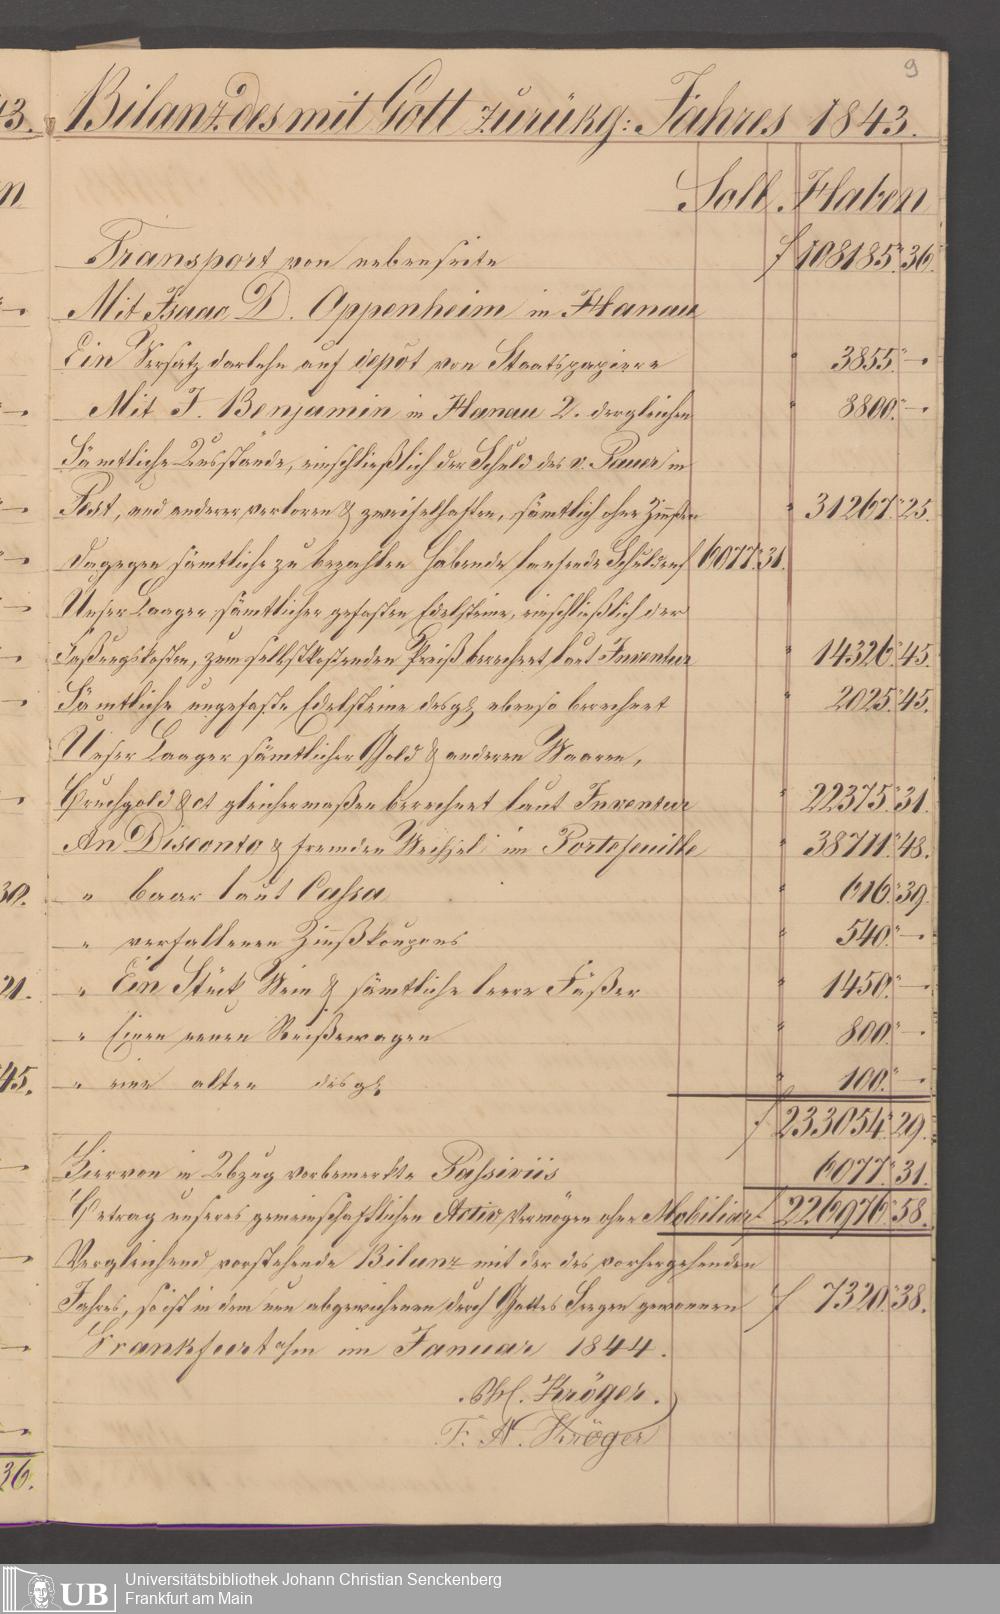 9
Bilanz des mit Gott zurükg: Jahres 1843.
Soll. Haben
Transport von nebenseite f 108185.36.
Mit Isaac D. Oppenheim in Hanau
Ein Versatz darlehn auf depôt von Staatspapiere " 3855.—.
Mit J. Benjamin in Hanau 2. dergleichen " 3800.—.
Sämtliche Ausstände, einschließlich der Schuld des v. Pauer in
Pest, und anderer verloren & zweifelhaften, sämtlich ohne Zinßen " 31267.25.
dagegen sämtliche zu bezahlen habende laufende Schulden f 6077.31.
Unser Laager sämtlicher gefasten Edelsteine, einschließlich der
Faßungskosten, zum selbstkostenden Preiß berechnet laut Inventur " 14326.45.
Sämtliche ungefaste Edelsteine desgl. ebenso berechnet " 2025.45.
Unser Laager sämtlicher Gold & anderen Waaren,
Bruchgold &ct gleichermaßen berechnet laut Inventur " 22375.31.
An Disconto & fremden Wechsel im Portefeuille " 38711.48.
" baar laut Cassa " 616.39
" verfallenen Zinßkoupons " 540.—.
" Ein Stück Wein & sämtliche leere Fäßer " 1450.—.
" Einen neuen Reißewagen " 800.—.
" eine alten desgl. " 100.—.
f 233054.29.
Hiervon in Abzug vorbemerkte Passiviis 6077.31.
Betrag unseres gemeinschaftlichen Activ Vermögen ohne Mobiliar f 226976.58.
Vergleichend vorstehende Bilanz mit der des vorhergehenden
Jahres, so ist in dem nun abgewichenen durch Gottes Seegen gewonnen f 7320.38.
Frankfurt a/m im Januar 1844.
Kröger.
F. A. Kröger
43.
n
30.
21.
45.
36.
UB
Universitätsbibliothek Johann Christian Senckenberg
Frankfurt am Main